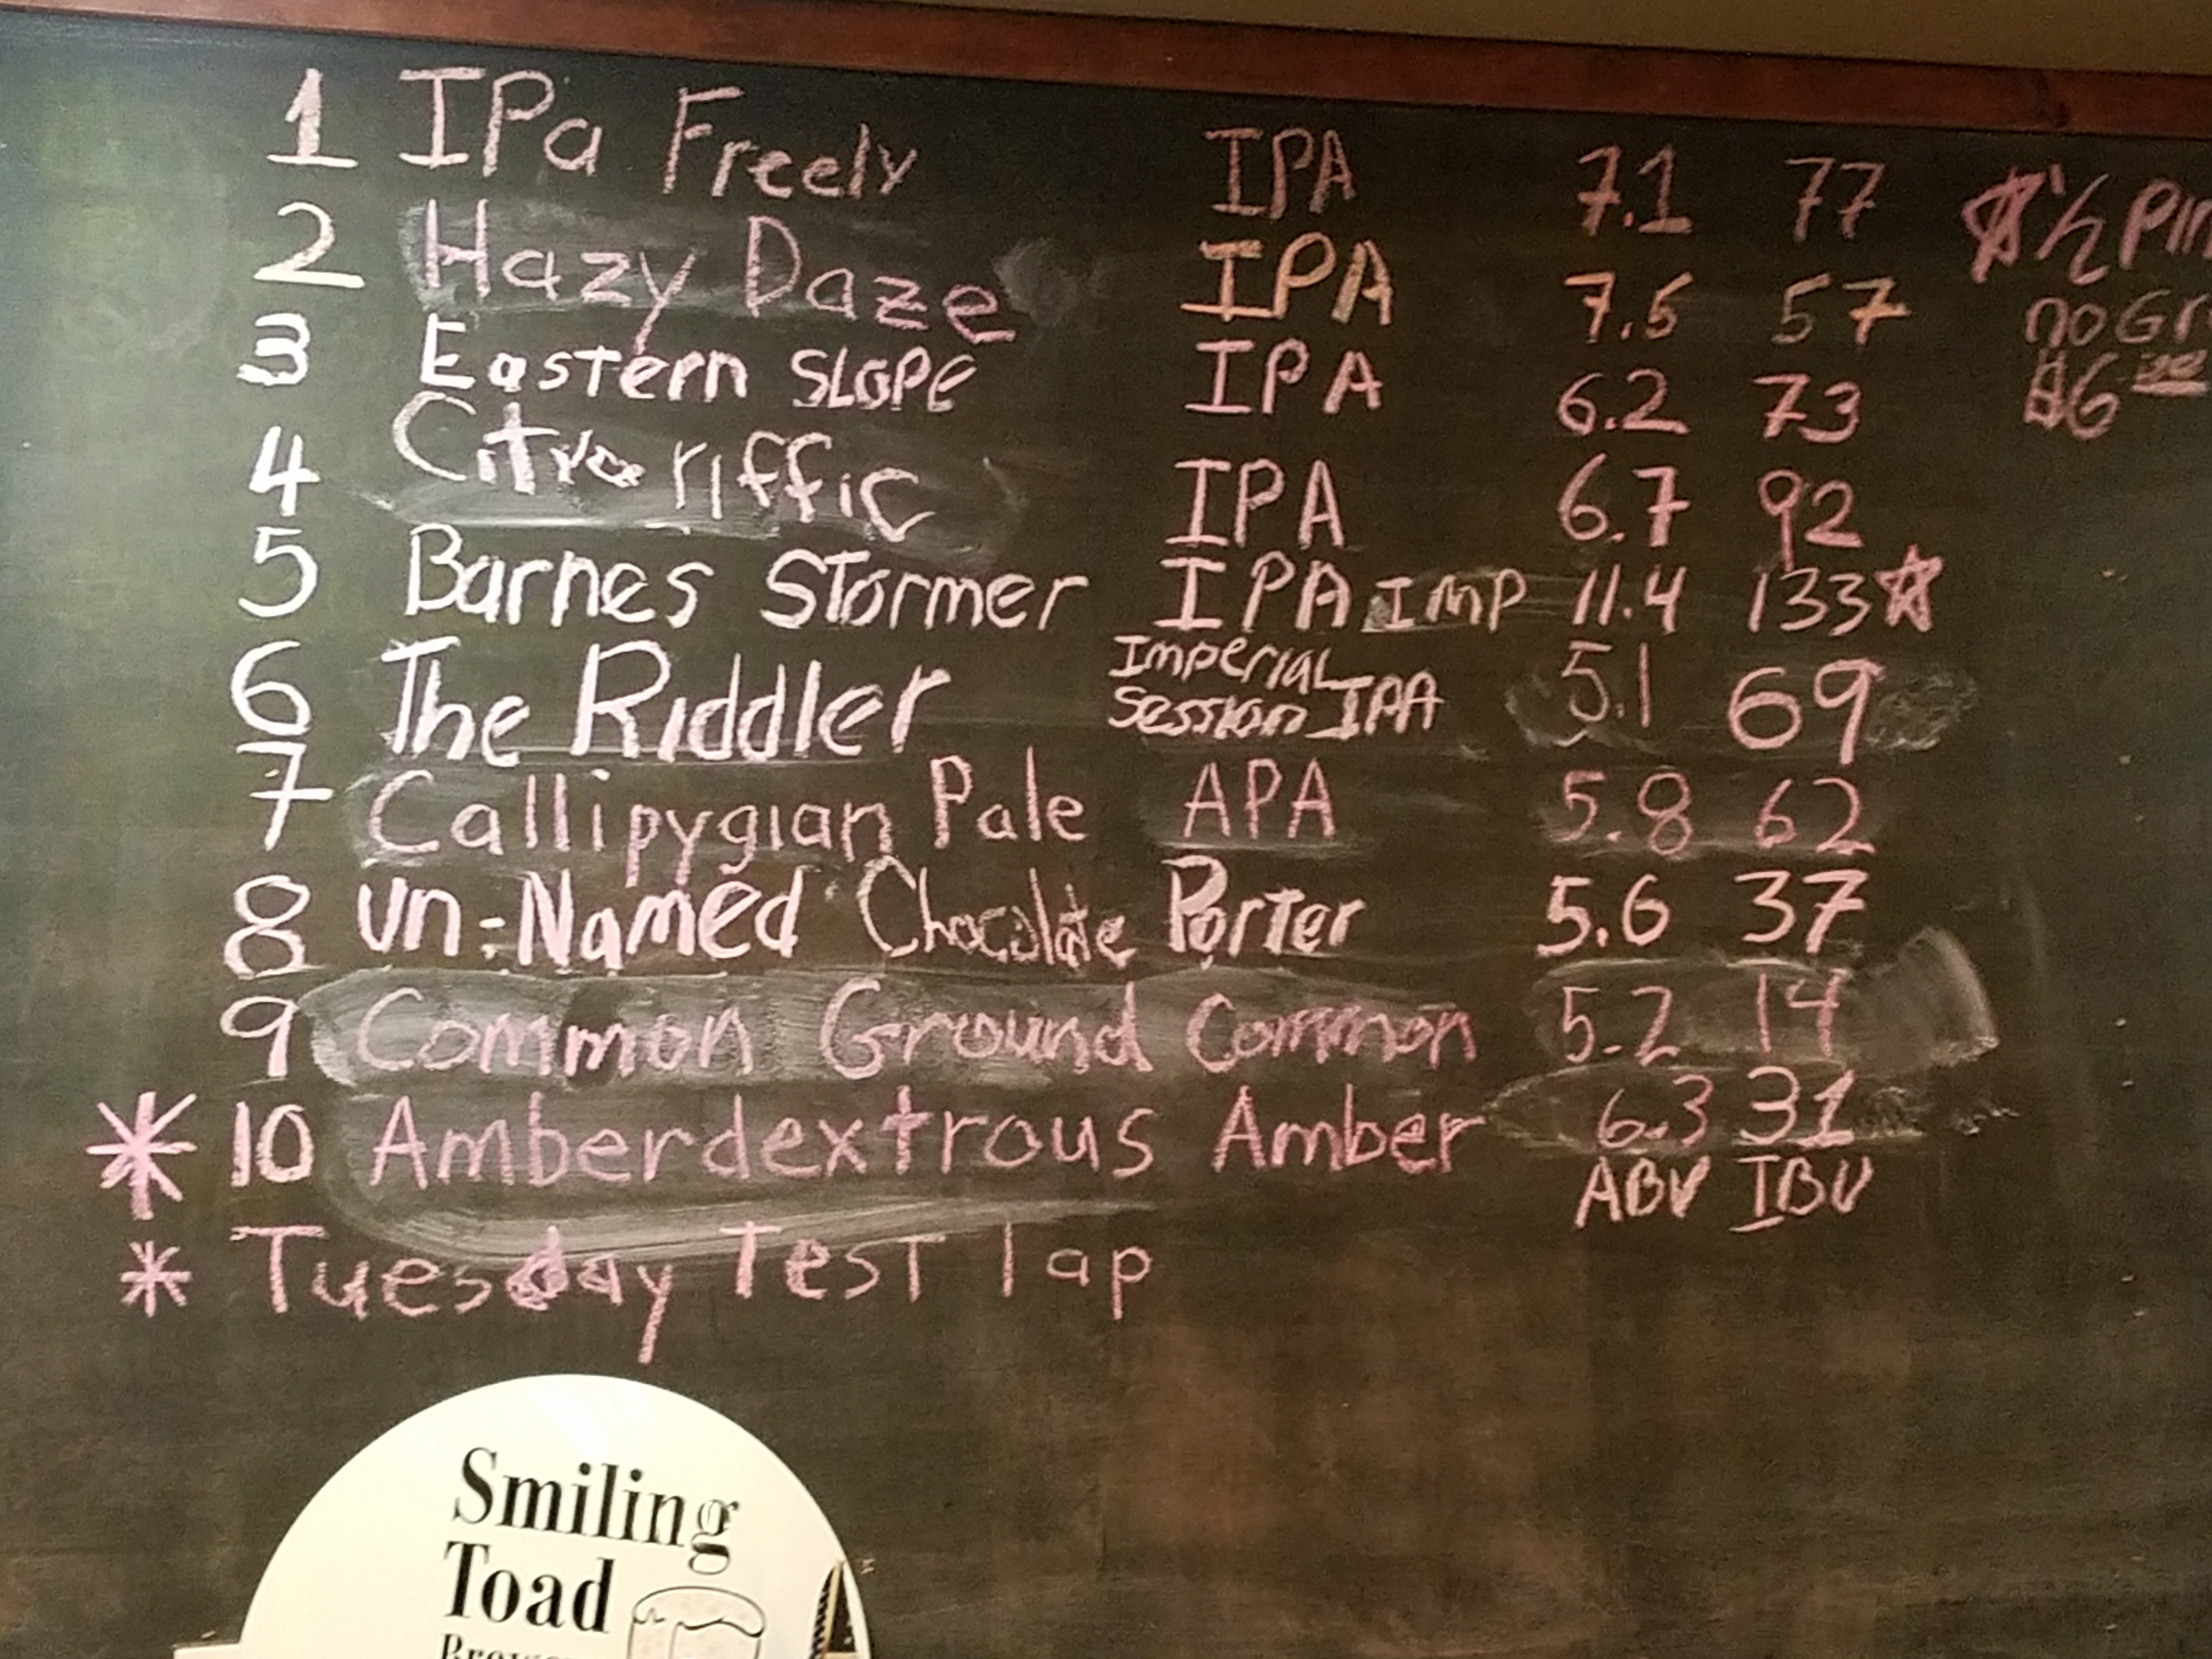 1 IPa Freely IPA 7.1 77 ☆ 1/2 PIN
2 Hazy Daze IPA 7.5 57 no Gr
3 Eastern SLOPE IPA 6.2 73 $6
4 Citra riffic IPA 6.7 92
5 Barnes Stormer IPA IMP 11.4 133 ☆
6 The Riddler Imperial Session IPA 5.1 69
7 Callipygian Pale APA 5.8 62
8 un-Named Chocolate Porter 5.6 37
9 Common Ground Common 5.2 14
* 10 Amberdextrous Amber 6.3 31
ABV IBU
* Tuesday Test Tap
Smiling
Toad